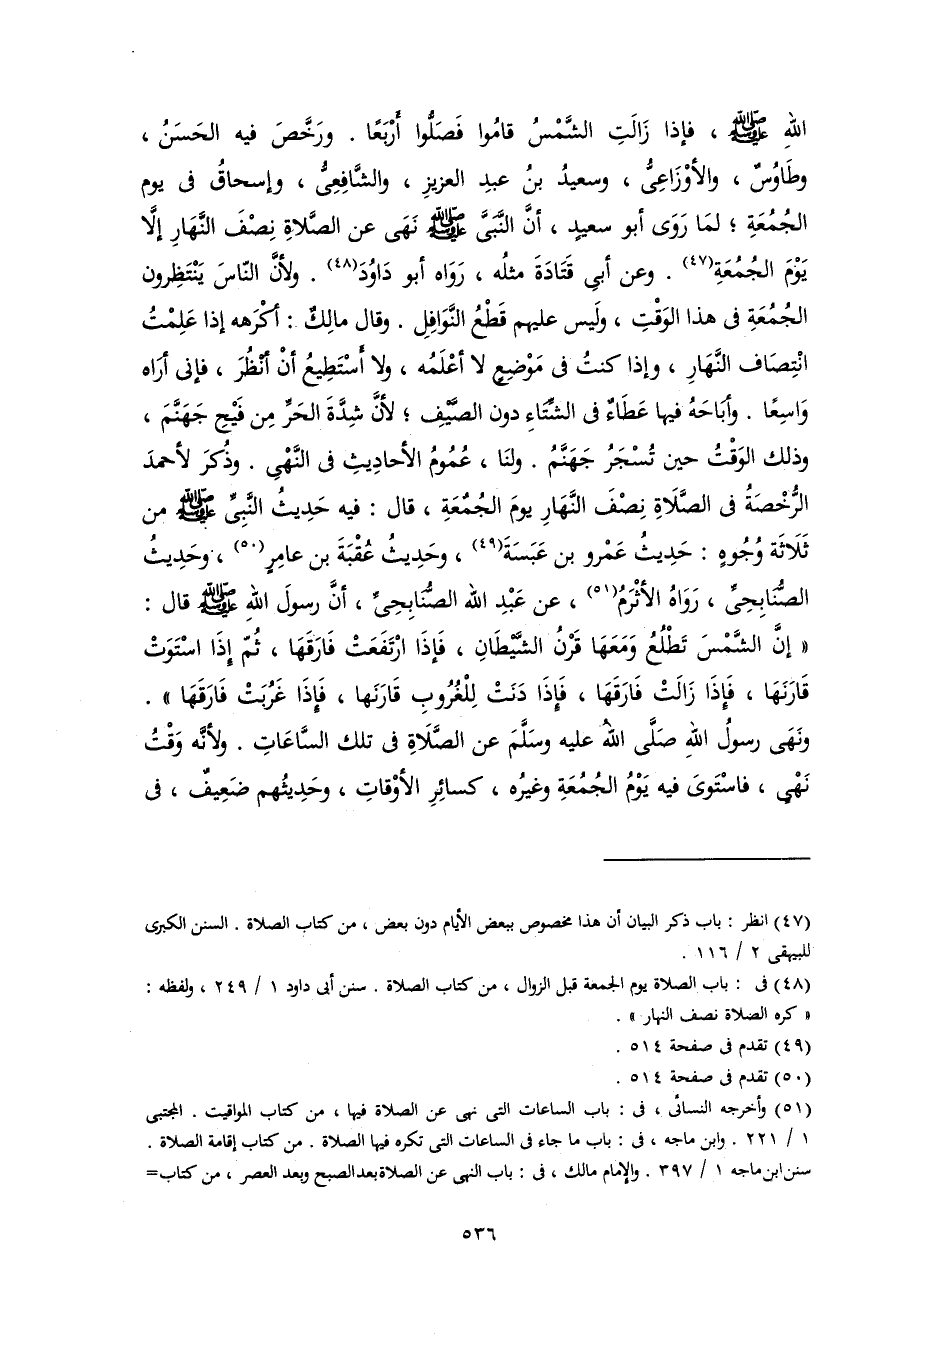 اللهِ ﷺ ، فإذا زَالَتِ الشَّمْسُ قامُوا فَصَلُّوا أَرْبَعًا . ورَخَّصَ فيه الحَسَنُ ،
وطَاوُسٌ ، والأوْزَاعِىُّ ، وسعيدُ بنُ عبدِ العزيزِ ، والشَّافِعِىُّ ، وإسحاقُ فى يومِ
الجُمُعَةِ ؛ لمَا رَوَى أبو سعيدٍ ، أنَّ النَّبىَّ ﷺ نَهَى عن الصَّلاةِ نِصْفَ النَّهَارِ إلَّا
يَوْمَ الجُمُعَةِ(٤٧) . وعن أبي قَتَادَةَ مثلُه ، رَوَاه أبو دَاوُدَ(٤٨) . ولأنَّ النّاسَ يَنْتَظِرون
الجُمُعَةِ فى هذا الوَقْتِ ، ولَيس عليهم قَطْعُ النَّوَافِلِ . وقال مالِكٌ : أكْرَهه إذا عَلِمْتُ
انْتِصَاف النَّهَارِ ، وإذا كنتُ فى مَوْضِعٍ لا أعْلَمُه ، ولا أسْتَطِيعُ أنْ أنْظُرَ ، فإنى أرَاه
وَاسِعًا . وأبَاحَهُ فيها عَطَاءٌ فى الشِّتَاءِ دون الصَّيْفِ ؛ لأنَّ شِدَّةَ الحَرِّ مِن فَيْحِ جَهَنَّمَ ،
وذلك الوَقْتُ حين تُسْجَرُ جَهَنَّمُ . ولنَا ، عُمُومُ الأحادِيثِ فى النَّهْىِ . وذُكرَ لأحمدَ
الرُّخْصَةُ فى الصَّلَاةِ نِصْفَ النَّهَارِ يومَ الجُمُعَةِ ، قال : فيه حَدِيثُ النَّبِىِّ ﷺ من
ثَلَاثَة وُجُوهٍ : حَدِيثُ عَمْرو بن عَبَسَةَ(٤٩) ، وحَدِيثُ عُقْبَةَ بن عامِرٍ(٥٠) ، وحَدِيثُ
الصُّنَابِحِىِّ ، رَوَاهُ الأثْرَمُ(٥١) ، عن عَبْدِ الله الصُّنَابِحِىِّ ، أنَّ رسولَ اللهِ ﷺ قال :
« إنَّ الشَّمْسَ تَطْلُعُ وَمَعَهَا قَرْنُ الشَّيْطَانِ ، فَإذَا ارْتَفَعَتْ فَارَقَهَا ، ثُمّ إذَا اسْتَوَتْ
قَارَنَهَا ، فَإذَا زَالَتْ فَارَقَهَا ، فَإذَا دَنَتْ لِلْغُرُوبِ قَارَنَها ، فَإذَا غَرُبَتْ فَارَقَهَا » .
ونَهَى رسولُ اللهِ صَلَّى اللهُ عليه وسَلَّمَ عن الصَّلَاةِ فى تلك السَّاعَاتِ . ولأنَّه وَقْتُ
نَهْيٍ ، فاسْتَوَىَ فيه يَوْمُ الجُمُعَةِ وغيرُه ، كسائِرِ الأوْقاتِ ، وحَدِيثُهم ضَعِيفٌ ، فى
(٤٧) انظر : باب ذكر البيان أن هذا مخصوص ببعض الأيام دون بعض ، من كتاب الصلاة . السنن الكبرى
للبيهقى ٢ / ١١٦ .
(٤٨) فى : باب الصلاة يوم الجمعة قبل الزوال ، من كتاب الصلاة . سنن أبى داود ١ / ٢٤٩ ، ولفظه :
« كره الصلاة نصف النهار » .
(٤٩) تقدم فى صفحة ٥١٤ .
(٥٠) تقدم فى صفحة ٥١٤ .
(٥١) وأخرجه النسائى ، فى : باب الساعات التى نهى عن الصلاة فيها ، من كتاب المواقيت . المجتبى
١ / ٢٢١ . وابن ماجه ، فى : باب ما جاء فى الساعات التى تكره فيها الصلاة . من كتاب إقامة الصلاة .
سنن ابن ماجه ١ / ٣٩٧ . والإمام مالك ، فى : باب النهى عن الصلاة بعد الصبح وبعد العصر ، من كتاب=
٥٣٦